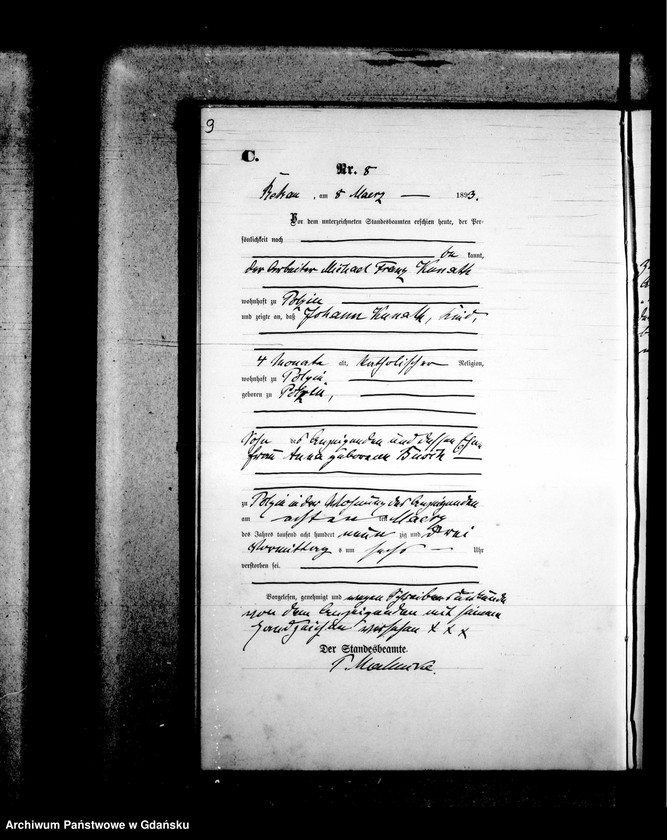 9
C.
Nr. 8
am 8 Maerz 1893.
Vor dem unterzeichneten Standesbeamten erschien heute, der Per-
sönlichkeit nach
be kannt,
der Arbeiter Michael Franz Kunath
wohnhaft zu Polzin
und zeigte an, daß Johann Kunath, Kind,
4 Monate alt, katholischer Religion,
wohnhaft zu Polzin
geboren zu Polzin,
Sohn des Anzeigenden und dessen Ehe-
frau Anna geborenen
zu Polzin in der Wohnung des Anzeigenden
am achten ten Maerz
des Jahres tausend acht hundert neun zig und drei
Vormittag s um sechs Uhr
verstorben sei.
Vorgelesen, genehmigt und wegen Schreibensunkunde
von dem Anzeigenden mit seinem
Handzeichen versehen x x x
Der Standesbeamte.
Archiwum Państwowe w Gdańsku